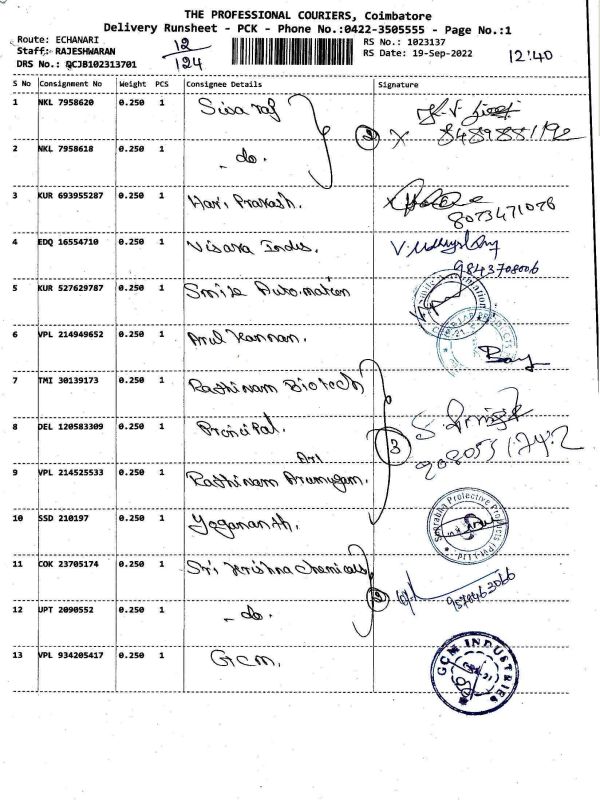 THE PROFESSIONAL COURIERS, Coimbatore
Delivery Runsheet - PCK - Phone No.:0422-3505555 - Page No.:1
Route: ECHANARI
Staff: RAJESHWARAN
DRS No.: QCJB102313701
12/124
RS No.: 1023137
RS Date: 19-Sep-2022
12:40
S No Consignment No Weight PCS Consignee Details Signature
1 NKL 7958620 0.250 1 Sivaraj
8489881192
2 NKL 7958618 0.250 1 - do.
2
3 KUR 693955287 0.250 1 Hari Prakash.
8073471078
4 EDQ 16554710 0.250 1
9843708006
5 KUR 527629787 0.250 1 Smile Automation
6 VPL 214949652 0.250 1 Arul Kannan.
7 TMI 30139173 0.250 1 Rathinam Biotech
8 DEL 120583309 0.250 1 Principal.
3
9 VPL 214525533 0.250 1 Rathinam Arumugam.
10 SSD 210197 0.250 1 Yogananth.
Sourabha Protective Products (Pvt) Ltd
11 COK 23705174 0.250 1 Sri Krishna Chemicals
2
12 UPT 2090552 0.250 1 - do.
13 VPL 934205417 0.250 1 GCM.
GCM INDUSTRIES